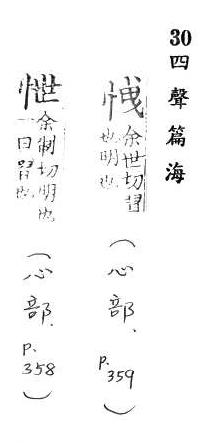 30四聲篇海
余世切習
也明也
(心部、P.359)
怈余制切明也
一曰習也
(心部、P.358)